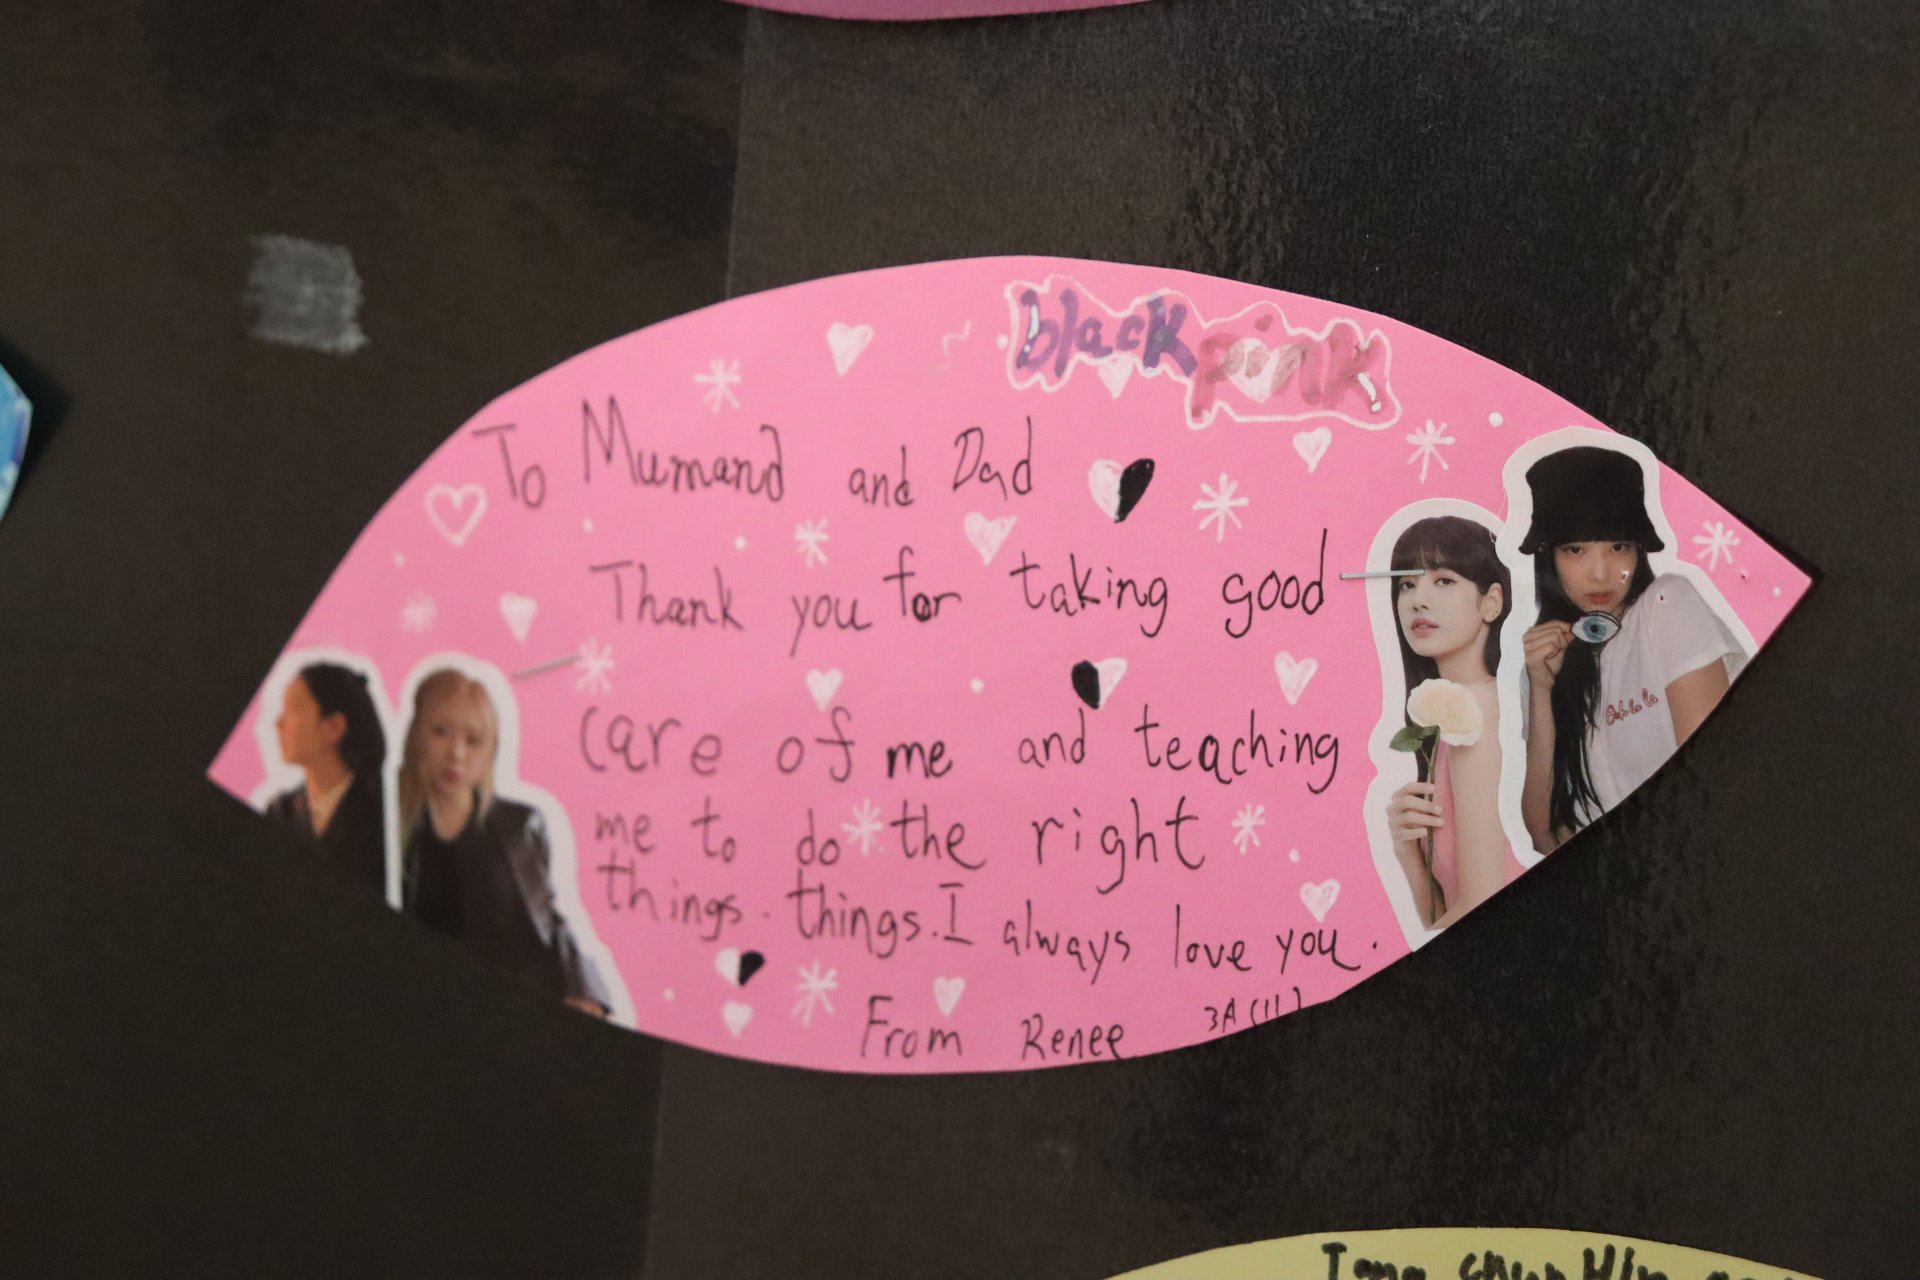 black pink!
To Mumand and Dad
Thank you for taking good
care of me and teaching
me to do the right
things. things. I always love you.
From Renee 3A(11)
Ooh la la